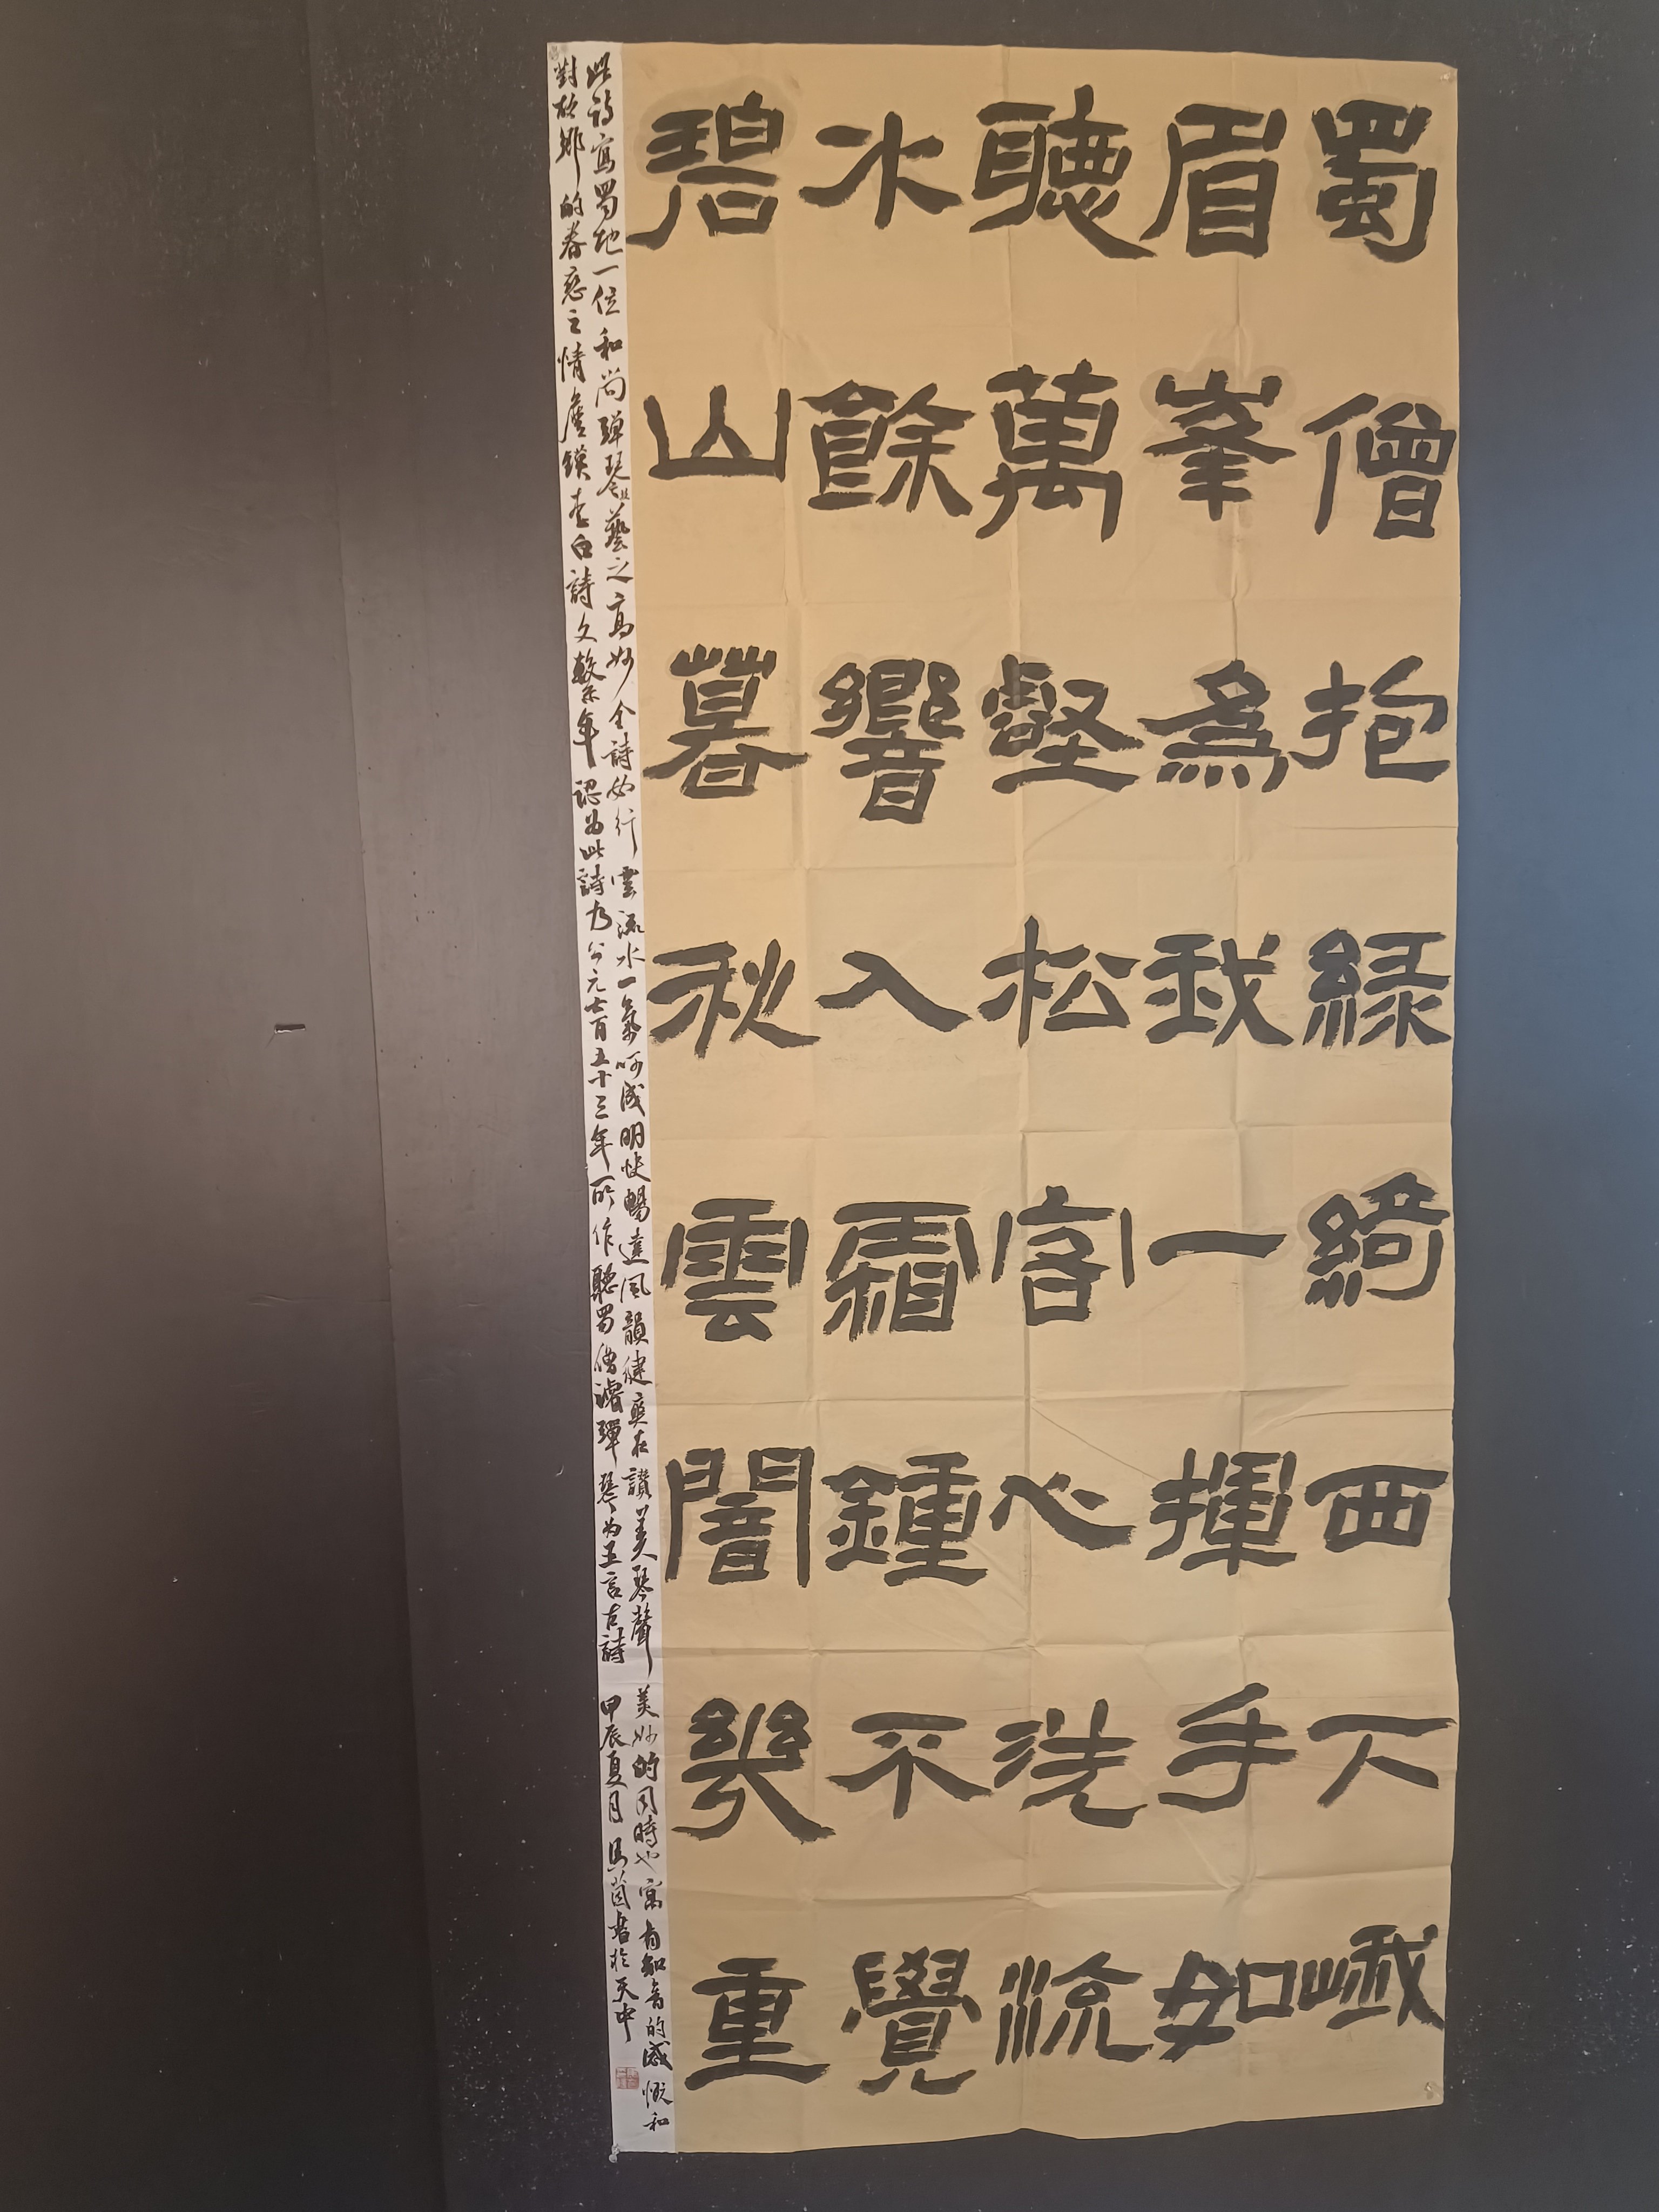 蜀僧抱緑綺西下峨
眉峯為我一揮手如
聽萬壑松客心洗流
水餘響入霜鍾不覺
碧山暮秋雲闇幾重
此詩寫蜀地一位和尚彈琴技藝之高妙全詩如行雲流水一氣呵成明快暢達風韻健爽在讚美琴聲美妙的同時也寓有知音的感慨和
對故鄉的眷恋之情詹鍈李白詩文繫年認为此詩为公元七百五十三年所作聽蜀僧濬彈琴为五言古詩 甲辰夏月馬茵書於天中